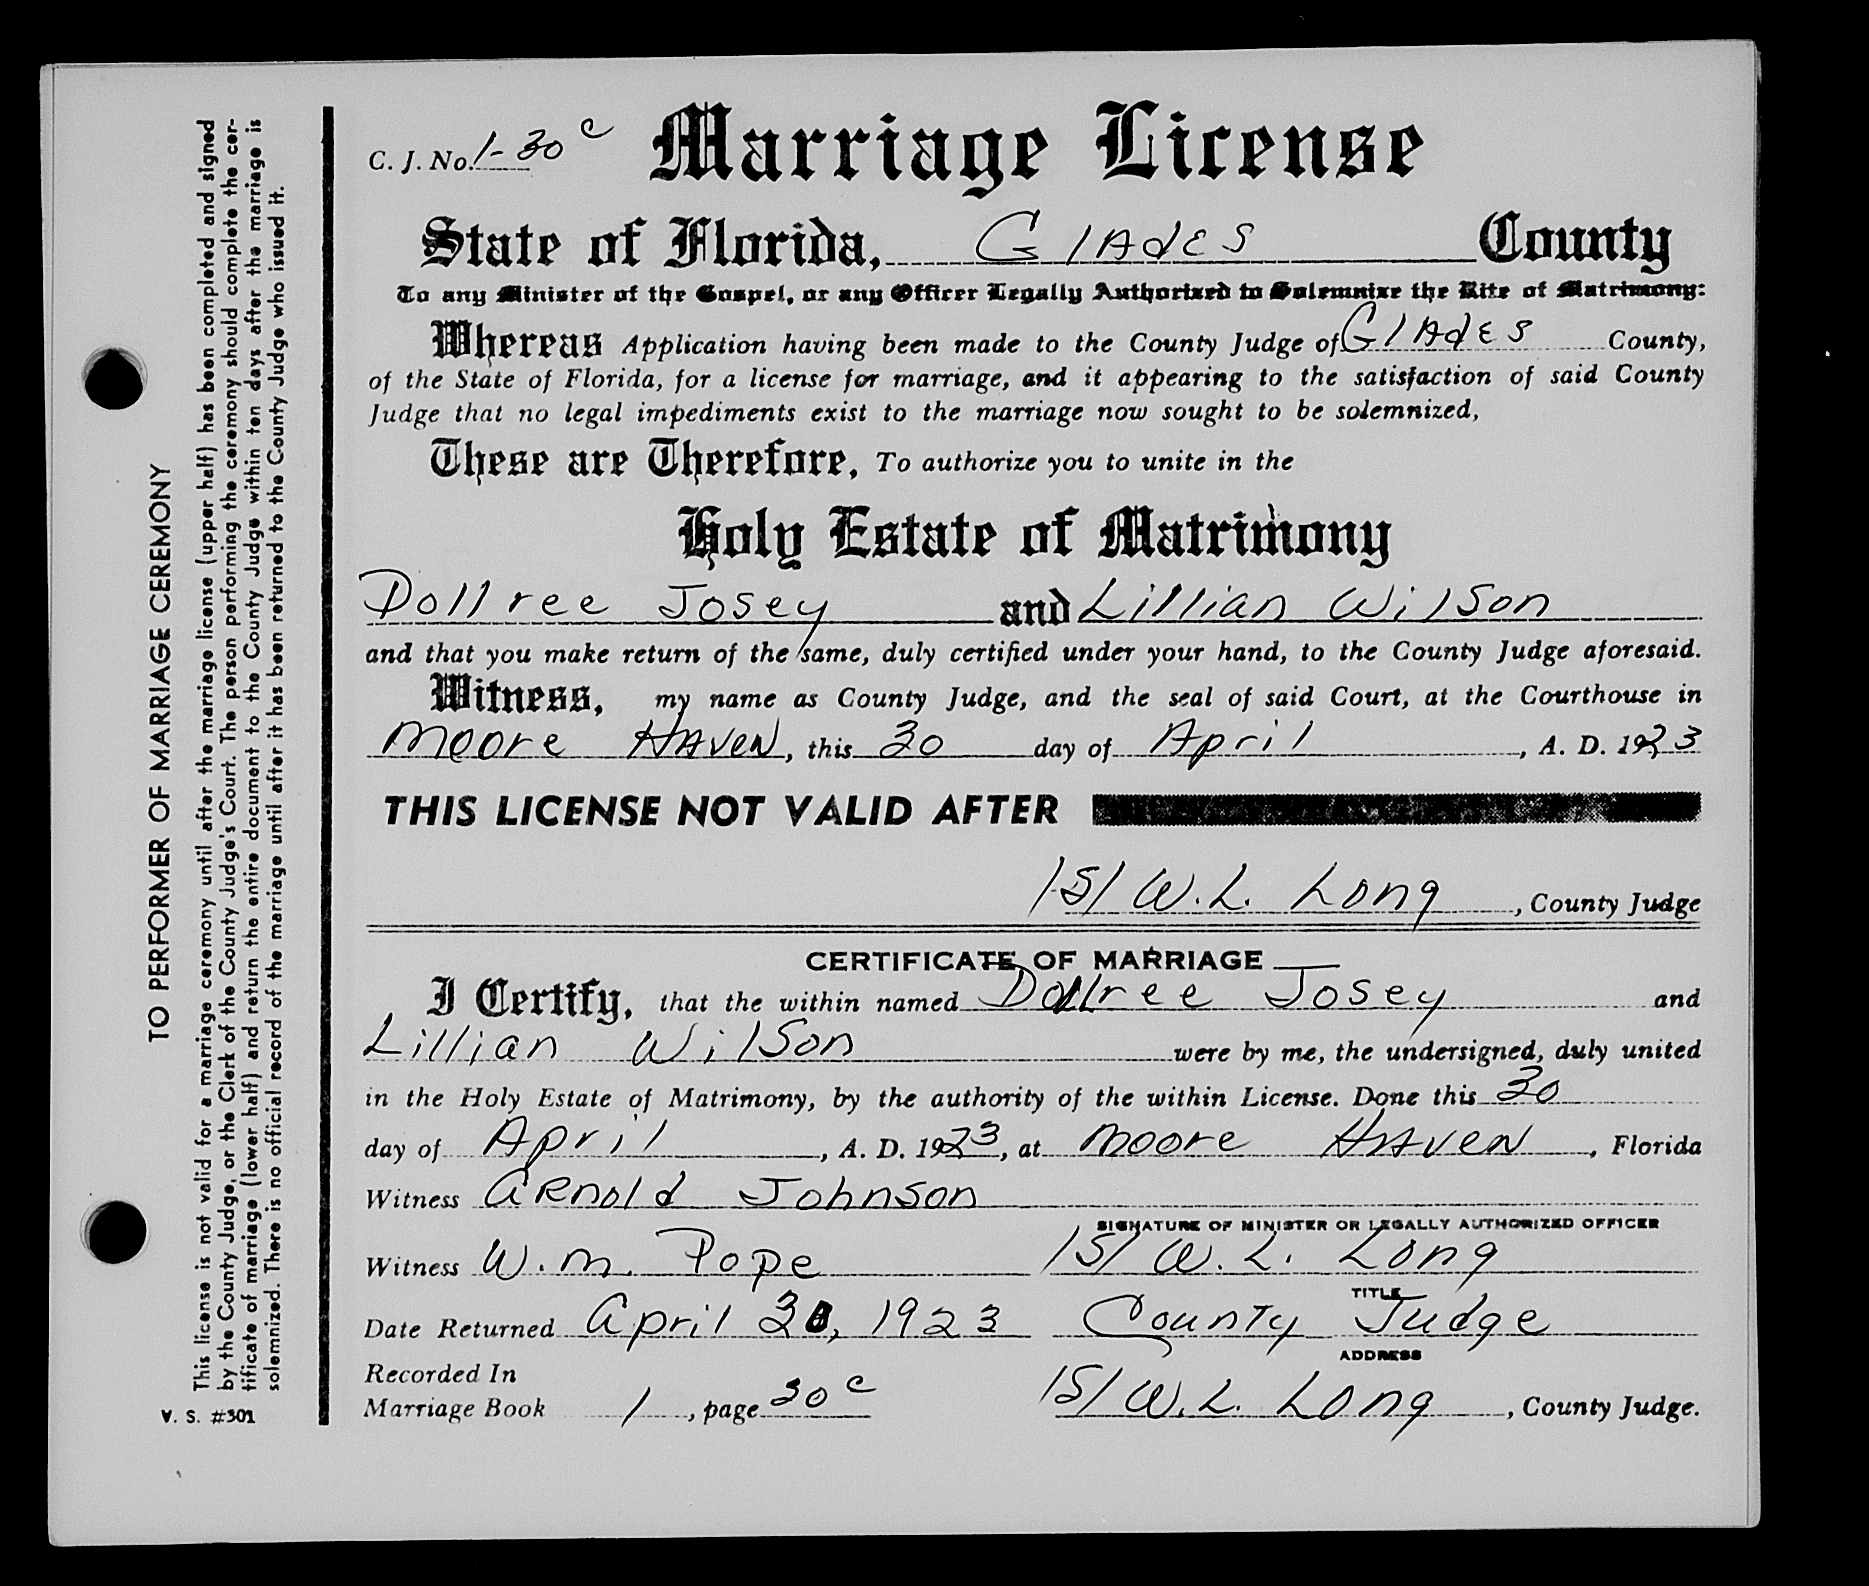 TO PERFORMER OF MARRIAGE CEREMONY
This license is not valid for a marriage ceremony until after the marriage license (upper half) has been completed and signed
by the County Judge, or the Clerk of the County Judge's Court. The person performing the ceremony should complete the cer-
tificate of marriage (lower half) and return the entire document to the County Judge within ten days after the marriage is
solemnized. There is no official record of the marriage until after it has been returned to the County Judge who issued it.
V. S. #301
C. J. No. 1-30 c Marriage License
State of Florida, Glades County
To any Minister of the Gospel, or any Officer Legally Authorized to Solemnize the Rite of Matrimony:
Whereas Application having been made to the County Judge of Glades County,
of the State of Florida, for a license for marriage, and it appearing to the satisfaction of said County
Judge that no legal impediments exist to the marriage now sought to be solemnized,
These are Therefore, To authorize you to unite in the
Holy Estate of Matrimony
Dollree Josey and Lillian Wilson
and that you make return of the same, duly certified under your hand, to the County Judge aforesaid.
Witness, my name as County Judge, and the seal of said Court, at the Courthouse in
Moore Haven, this 30 day of April, A. D. 1923
THIS LICENSE NOT VALID AFTER
/S/ W. L. Long, County Judge
CERTIFICATE OF MARRIAGE
I Certify, that the within named Dollree Josey and
Lillian Wilson were by me, the undersigned, duly united
in the Holy Estate of Matrimony, by the authority of the within License. Done this 30
day of April, A. D. 1923, at Moore Haven, Florida
Witness Arnold Johnson
SIGNATURE OF MINISTER OR LEGALLY AUTHORIZED OFFICER
Witness W. M. Pope /S/ W. L. Long
TITLE
Date Returned April 30, 1923 County Judge
ADDRESS
Recorded In
Marriage Book 1, page 30 c /S/ W. L. Long, County Judge.